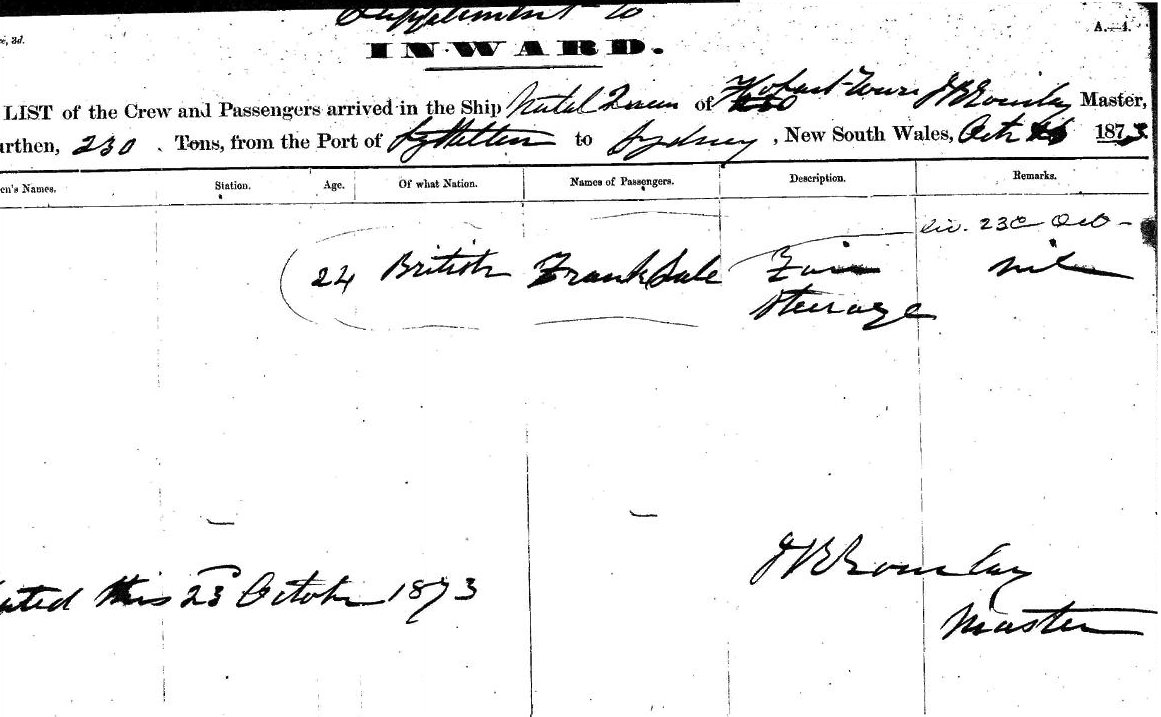 Supplement to
INWARD.
e, 3d.
A.—4.
LIST of the Crew and Passengers arrived in the Ship Natal Queen of Hobart Town J B Romley Master,
urthen, 230 . Tons, from the Port of Lyttelton to Sydney , New South Wales, Octr 1873
en's Names. Station. Age. Of what Nation. Names of Passengers. Description. Remarks.
230 Oct
24 British Frank Sale nil
Steerage
ated this 23 October 1873
J B Romley
Master